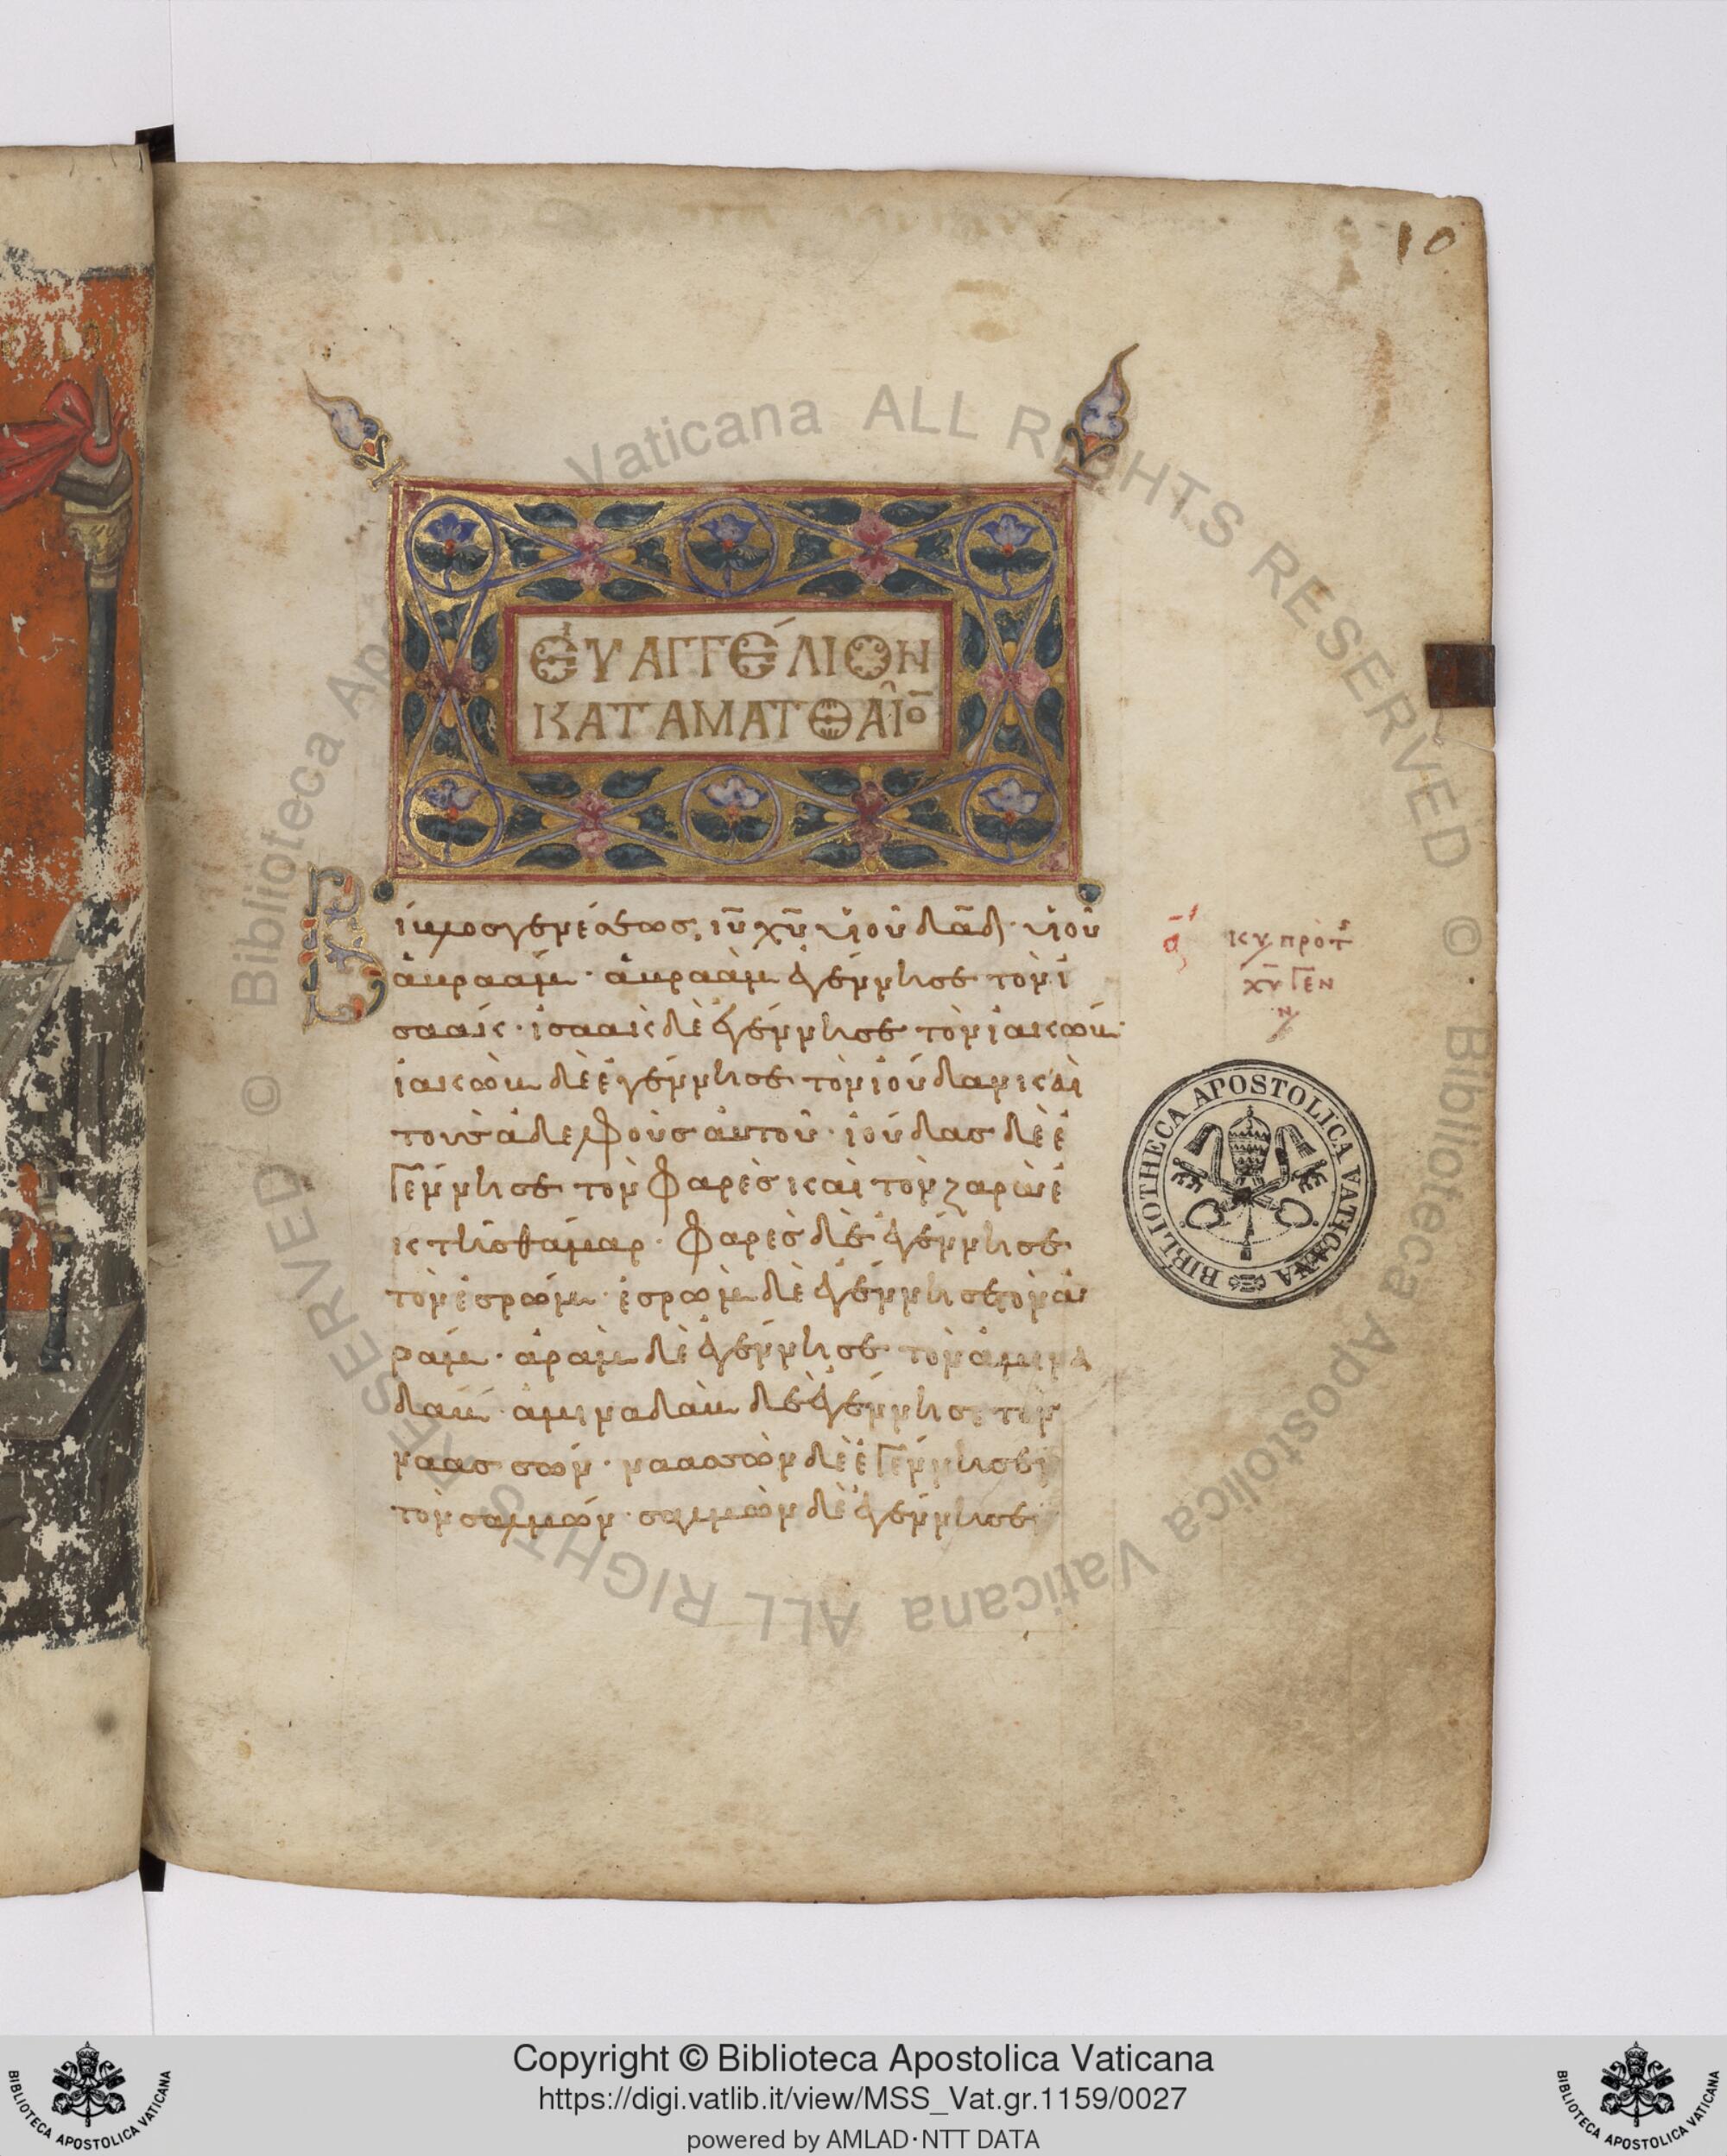 10
ΕΥΑΓΓΕΛΙΟΝ
ΚΑΤΑΜΑΤΘΑΙΟ̅
Βίβλος γενέσεως, ιυ̅ χυ̅ υἱοῦ δα̅δ· υἱοῦ
ἀβραάμ· ἀβραὰμ ἐγέννησε τὸν ἰ
σαάκ· ἰσαὰκ δὲ ἐγέννησε τὸν ἰακώβ·
ἰακὼβ δὲ ἐγέννησε τὸν ἰούδαν καὶ
τοὺς ἀδελφοὺς αὐτοῦ· ἰούδας δὲ ἐ
γέννησε τὸν φαρὲς καὶ τὸν ζαρὰ ἐ
κ τῆς θάμαρ· φαρὲς δὲ ἐγέννησε
τὸν ἐσρώμ· ἐσρὼμ δὲ ἐγέννησε τὸν ἀ
ράμ· ἀρὰμ δὲ ἐγέννησε τὸν ἀμινα
δάβ· ἀμιναδὰβ δὲ ἐγέννησε τὸν
ναασσών· ναασσὼν δὲ ἐγέννησε
τὸν σαλμών· σαλμὼν δὲ ἐγέννησε
α
κυ προ τ
χυ̅ γεν
ν
BIBLIOTHECA APOSTOLICA VATICANA
© Biblioteca Apostolica Vaticana ALL RIGHTS RESERVED © Biblioteca Apostolica Vaticana ALL RIGHTS RESERVED
Copyright © Biblioteca Apostolica Vaticana
https://digi.vatlib.it/view/MSS_Vat.gr.1159/0027
powered by AMLAD·NTT DATA
BIBLIOTECA APOSTOLICA VATICANA
BIBLIOTECA APOSTOLICA VATICANA